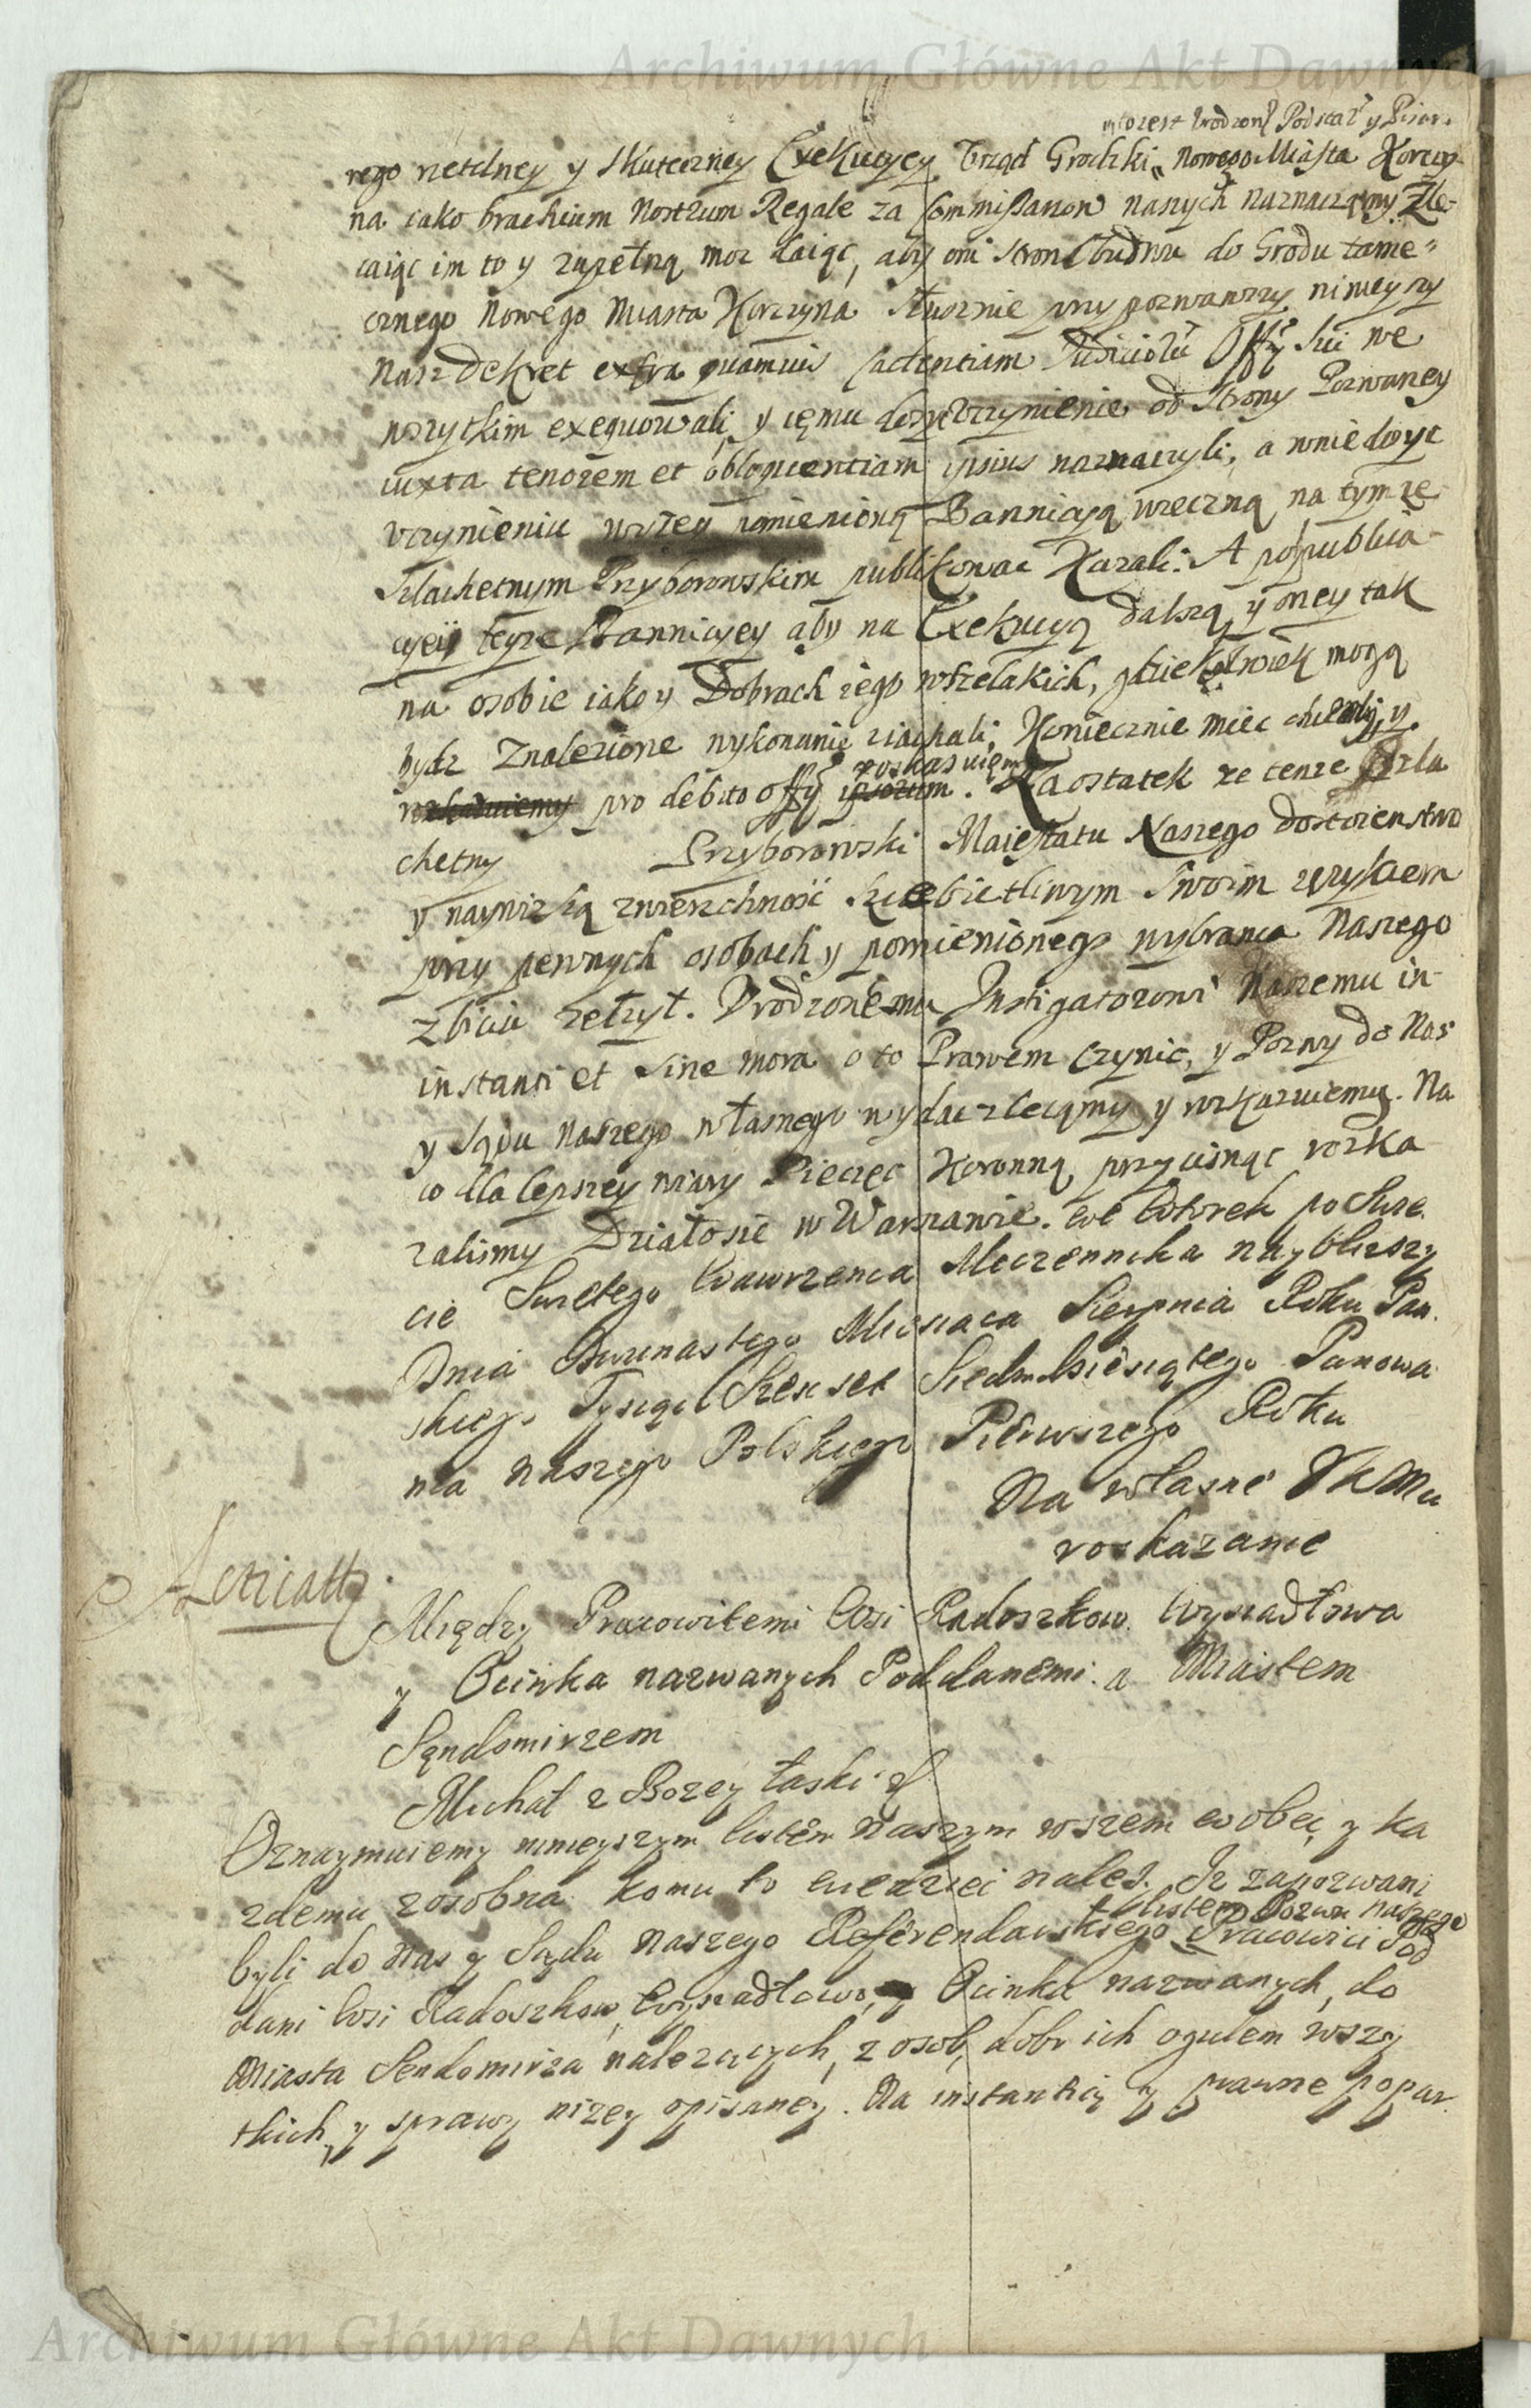 Archiwum Główne Akt Dawnych
to iest Urodzony Podstar y Pisarz
rego rzetelney y skuteczney Exekucyey Urząd Grodzki Nowego Miasta Korczy
na iako brachium Nostrum Regale za Commissarzow naszych naznaczamy Zle-
caiąc im to y zupełną moc daiąc, aby oni stron obudwu do Grodu tame-
cznego Nowego Miasta Korczyna słusznie przypozwawszy ninieyszy
Nasz dekret extra quamuis cadentiam Judiciorũ Offy Sui we
wszytkim exequowali y iemu dosyc uczynienie od Strony Pozwaney
iuxta tenorem et obloquentiam ipsius naznaczyli, a wniedosyc
uczynieniu wyzey pomienioną Bannicyą wieczną na tymze
Szlachetnym Przyborowskim publikowac Kazali: A po publica-
cyeij teyze Bannicyey aby na Exekucyą dalszą y oney tak
na osobie iako y Dobrach iego wszelakich, gdziekolwiek mogą
bydz Znalezione wykonanie ziachali, Koniecznie miec chcemy y
roskazuiemy
pro debito offy ipsorum. Naostatek ze tenze Szla
chetny Przyborowski Maiestatu Naszego dostoienstwo
y naywizszą zwierzchnosc szczebietliwym swoim ięzykiem
przy pewnych osobach y pomienionego wybranca Naszego
zbiciu zelzył. Urodzonemu Instigatorowi Naszemu in-
instanti et sine mora o to Prawem czynic, y Pozwy do Nas
y Sądu Naszego własnego wydac zlecamy y roskazuiemy. Na
co dla lepszey wiary Pieczęc Koronną przycisnąc roska
zalismy Działosie w Warszawie. we Wtorek po Swie
cie Swietego Wawrzenca Męczennika naybliszy
Dnia Dwunastego Miesiaca Sierpnia Roku Pan
skiego Tysiąc Szescset Siedmdziesiątego Panowa
nia Naszego Polskiego Pierwszego Roku
Na własne JKMci
roskazanie
Między Pracowitemi Wsi Radoszkow. Wysiadłowa
y Ocinka nazwanych Poddanemi. a Miastem
Sąndomirzem
Michał z Bozey łaski
Oznaymuiemy ninieyszym listem Naszym wszem wobec y ka
zdemu zosobna komu to wiedziec nalez. Iz zapozwani
listem Pozwu naszego
byli do Nas y Sądu Naszego Referendarskiego Pracowici Pod
dani Wsi Radoszkow, Wysiadłowa, y Ocinka nazwanych, do
Miasta Sendomirza nalezących, z osob, dobr ich ogulem wszy
tkich y sprawy nizey opisaney. Na instantią y prawne popar
Archiwum Główne Akt Dawnych